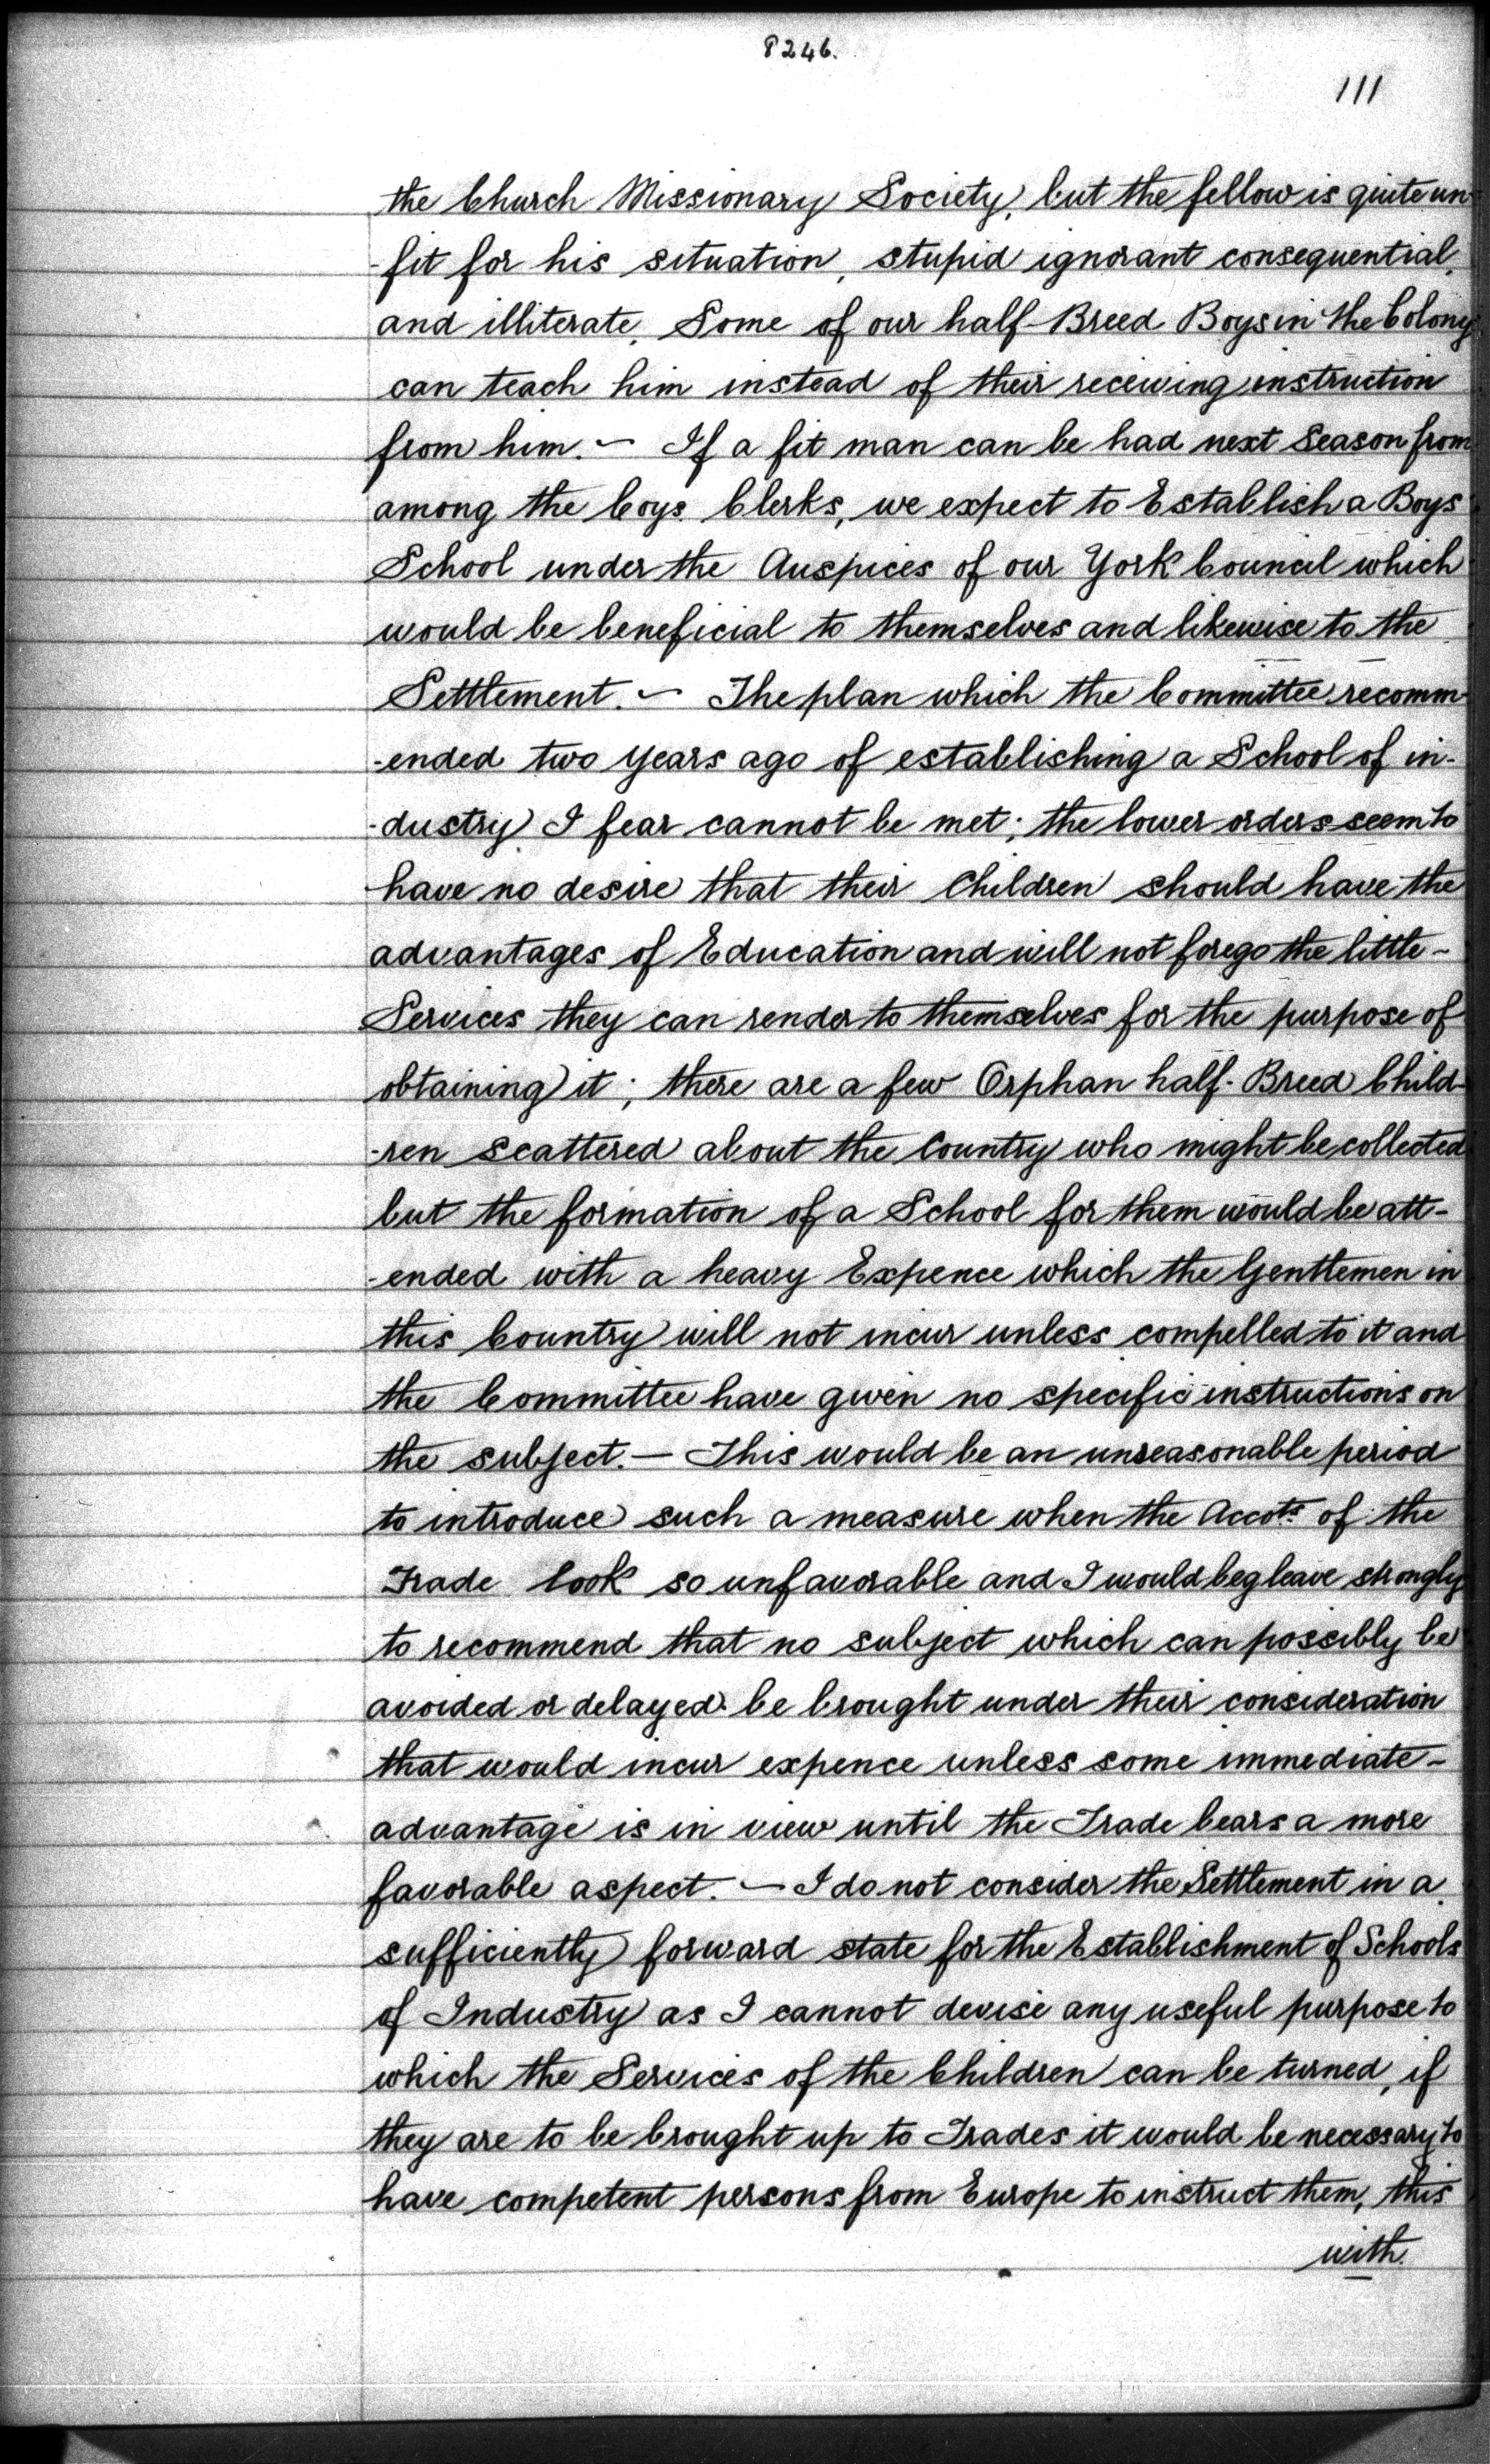 8246.
111
the Church Missionary Society, but the fellow is quite un-
-fit for his situation, stupid ignorant consequential,
and illiterate, Some of our half-Breed Boys in the Colony
can teach him instead of their receiving instruction
from him. — If a fit man can be had next Season from
among the Coys. Clerks, we expect to Establish a Boys
School under the Auspices of our York Council which
would be beneficial to themselves and likewise to the
Settlement. — The plan which the Committee recomm-
-ended two years ago of establishing a School of in-
-dustry I fear cannot be met; the lower orders seem to
have no desire that their Children should have the
advantages of Education and will not forego the little -
Services they can render to themselves for the purpose of
obtaining it; there are a few Orphan half-Breed Child-
-ren scattered about the Country who might be collected
but the formation of a School for them would be att-
-ended with a heavy Expence which the Gentlemen in
this Country will not incur unless compelled to it and
the Committee have given no specific instructions on
the subject. — This would be an unseasonable period
to introduce such a measure when the Accots. of the
Trade look so unfavorable and I would beg leave strongly
to recommend that no subject which can possibly be
avoided or delayed be brought under their consideration
that would incur expence unless some immediate -
advantage is in view until the Trade bears a more
favorable aspect. — I do not consider the Settlement in a
sufficiently forward state for the Establishment of Schools
of Industry as I cannot devise any useful purpose to
which the Services of the Children can be turned, if
they are to be brought up to Trades it would be necessary to
have competent persons from Europe to instruct them, this
with